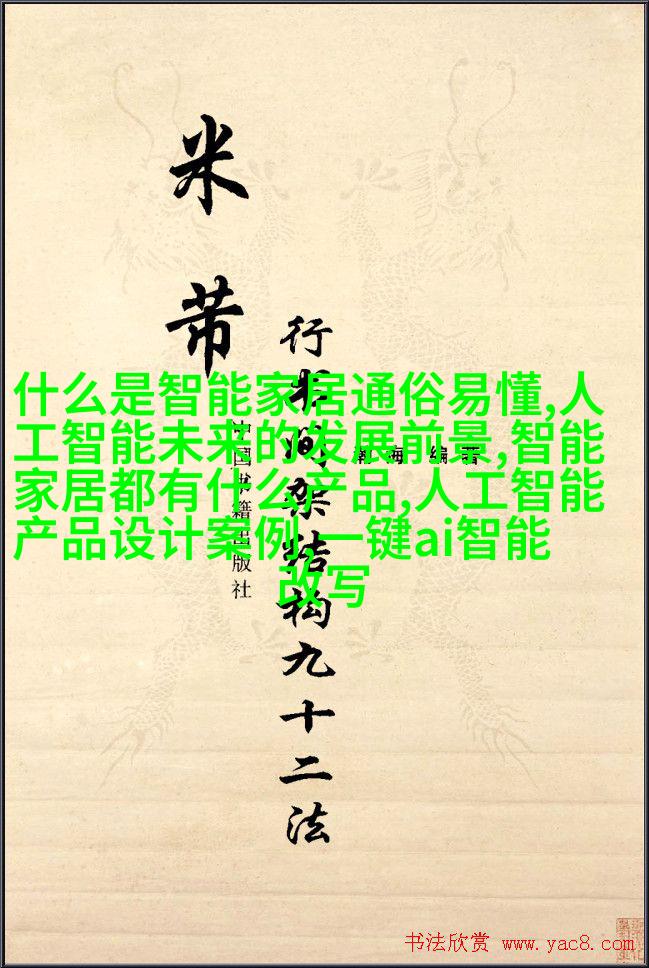 米芾
行书间架结构九十二法
海 编著
中国书籍出版社
什么是智能家居通俗易懂,人
工智能未来的发展前景,智能
家居都有什么产品,人工智能
产品设计案例,一键ai智能
改写
书法欣赏 www.yac8.com